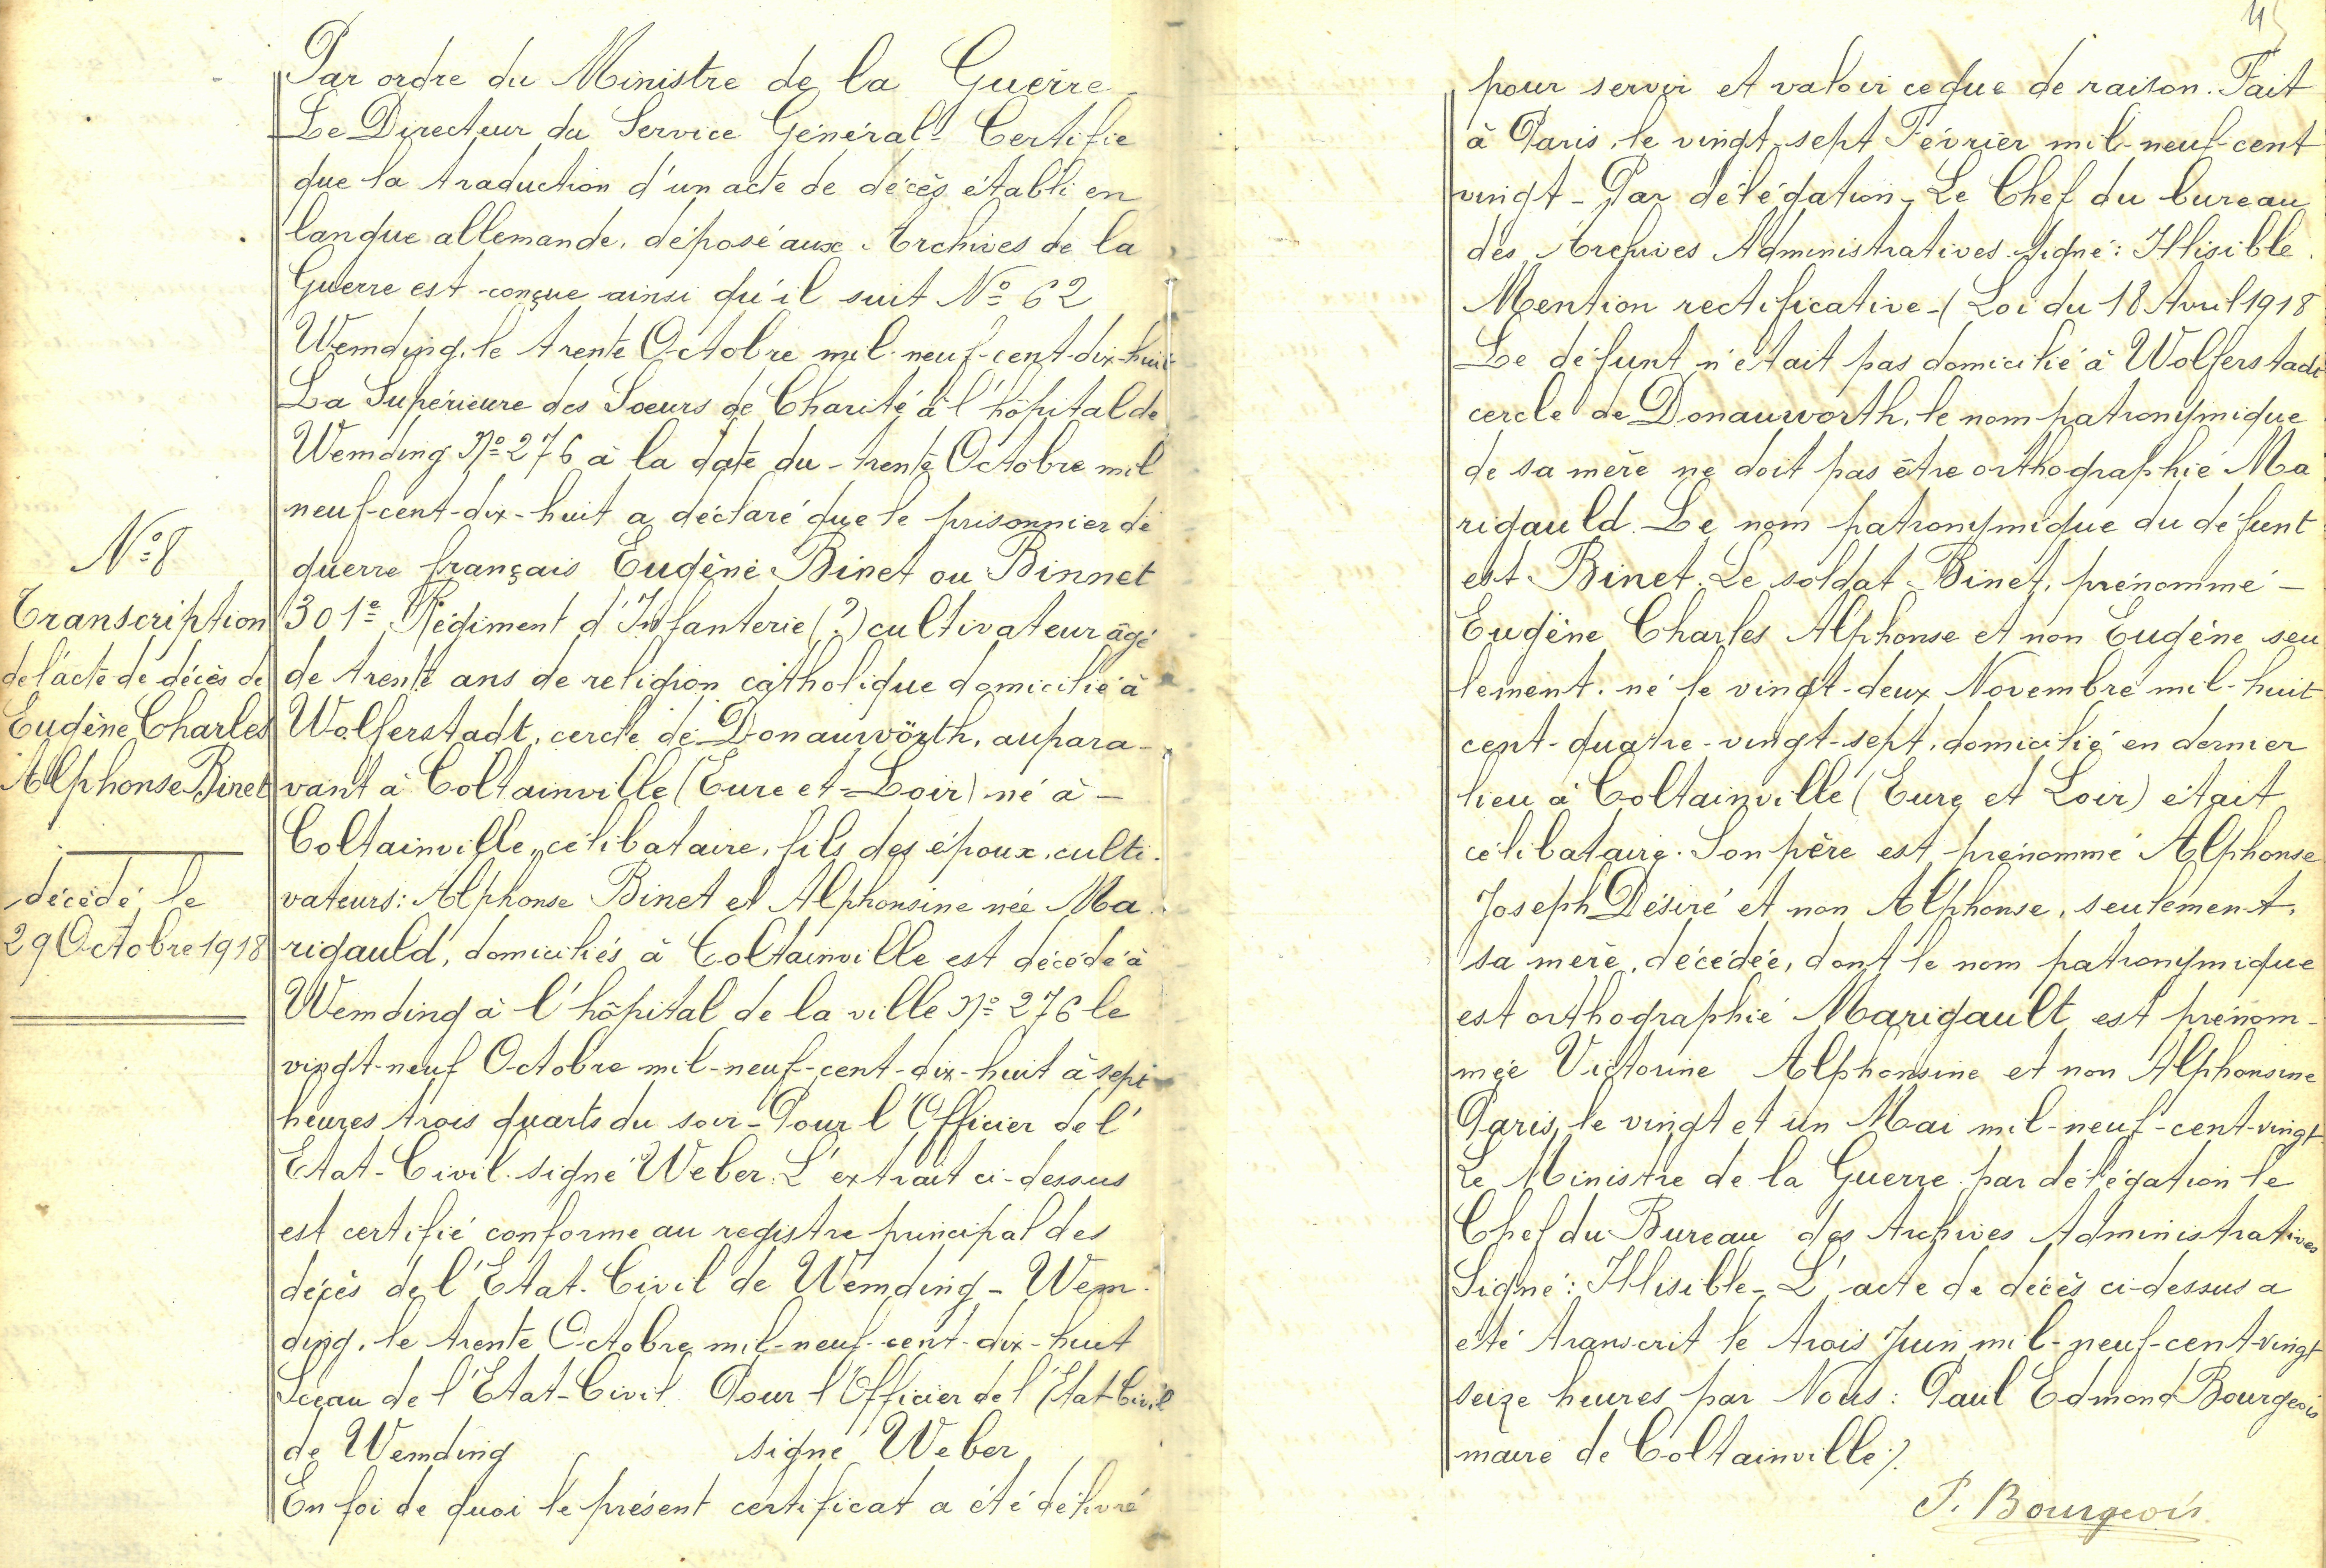 Par ordre du Ministre de la Guerre -
Le Directeur du Service Général - Certifie
que la traduction d'un acte de décès établi en
langue allemande, déposé aux Archives de la
Guerre est conçue ainsi qu'il suit N° 62
Wemding, le trente Octobre mil-neuf-cent-dix-huit
La Supérieure des Soeurs de Charité à l'hôpital de
Wemding N° 276 à la date du - trente Octobre mil
neuf-cent-dix-huit a déclaré que le prisonnier de
guerre français Eugène Binet ou Binnet
301e Régiment d'Infanterie (?) cultivateur âgé
de trente ans de religion catholique domicilié à
Wolferstadt, cercle de Donauwörth, aupara-
vant à Coltainville (Eure et Loir) né à -
Coltainville, célibataire, fils des époux, culti-
vateurs : Alphonse Binet et Alphonsine née Ma-
rigauld, domiciliés à Coltainville est décédé à
Wemding à l'hôpital de la ville N° 276 le
vingt-neuf Octobre mil-neuf-cent-dix-huit à sept
heures trois quarts du soir - Pour l'Officier de l'
Etat-Civil. signé Weber. L'extrait ci-dessus
est certifié conforme au registre principal des
décès de l'Etat-Civil de Wemding - Wem-
ding, le trente Octobre mil-neuf-cent-dix-huit
Sceau de l'Etat-Civil Pour l'Officier de l'Etat Civil
de Wemding signé Weber
En foi de quoi le présent certificat a été délivré
N° 8
Transcription
de l'acte de décès de
Eugène Charles
Alphonse Binet
décédé le
29 Octobre 1918
pour servir et valoir ce que de raison. Fait
à Paris, le vingt-sept Février mil-neuf-cent
vingt - Par délégation - Le Chef du bureau
des Archives Administratives. Signé : Illisible.
Mention rectificative - (Loi du 18 Avril 1918
Le défunt n'était pas domicilié à Wolferstadt
cercle de Donauworth, le nom patronymique
de sa mère ne doit pas être orthographié Ma
rigauld. Le nom patronymique du défunt
est Binet. Le soldat Binet, prénommé -
Eugène Charles Alphonse et non Eugène seu
lement. né le vingt-deux Novembre mil-huit
cent-quatre-vingt-sept, domicilié en dernier
lieu à Coltainville (Eure et Loir) était
célibataire. Son père est prénommé Alphonse
Joseph Désiré et non Alphonse, seulement,
sa mère, décédée, dont le nom patronymique
est orthographié Marigault est prénom-
mée Victorine Alphonsine et non Alphonsine
Paris, le vingt et un Mai mil-neuf-cent-vingt
Le Ministre de la Guerre par délégation le
Chef du Bureau des Archives Administratives
Signé : Illisible - L'acte de décès ci-dessus a
été transcrit le trois Juin mil-neuf-cent-vingt
seize heures par Nous : Paul Edmond Bourgeois
maire de Coltainville ./.
P. Bourgeois